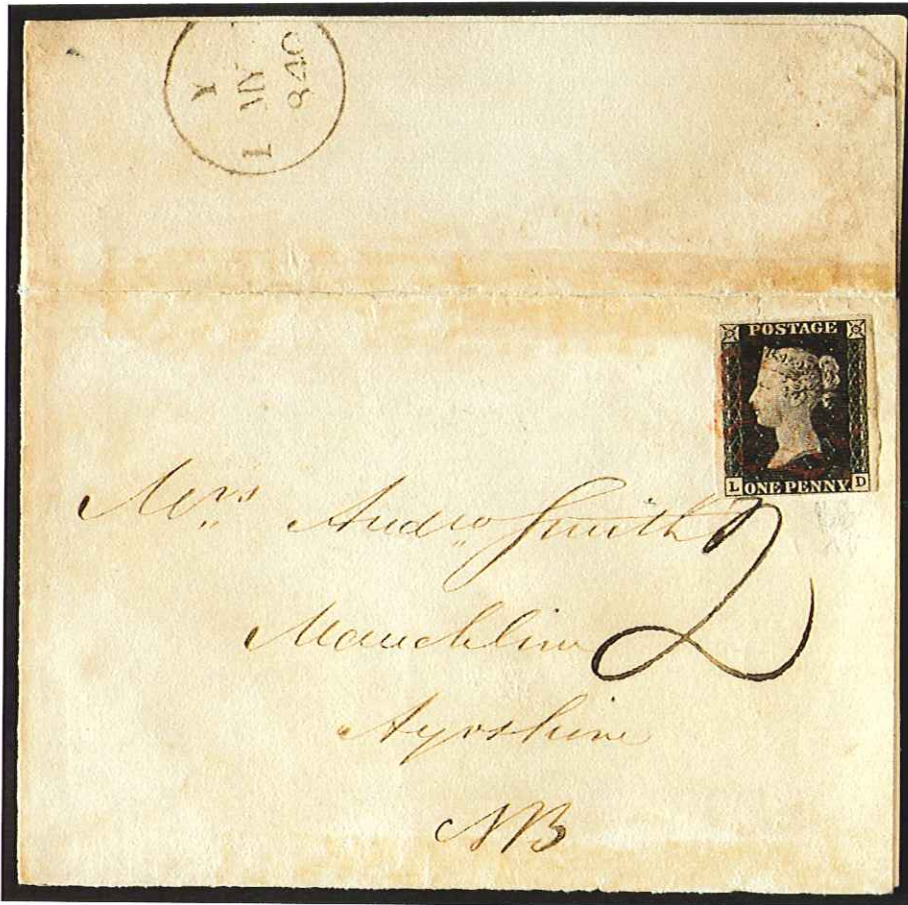 Y
1840
POSTAGE
L ONE PENNY D
Mrss Andrw Smith
2
Mauchline
Ayrshire
NB